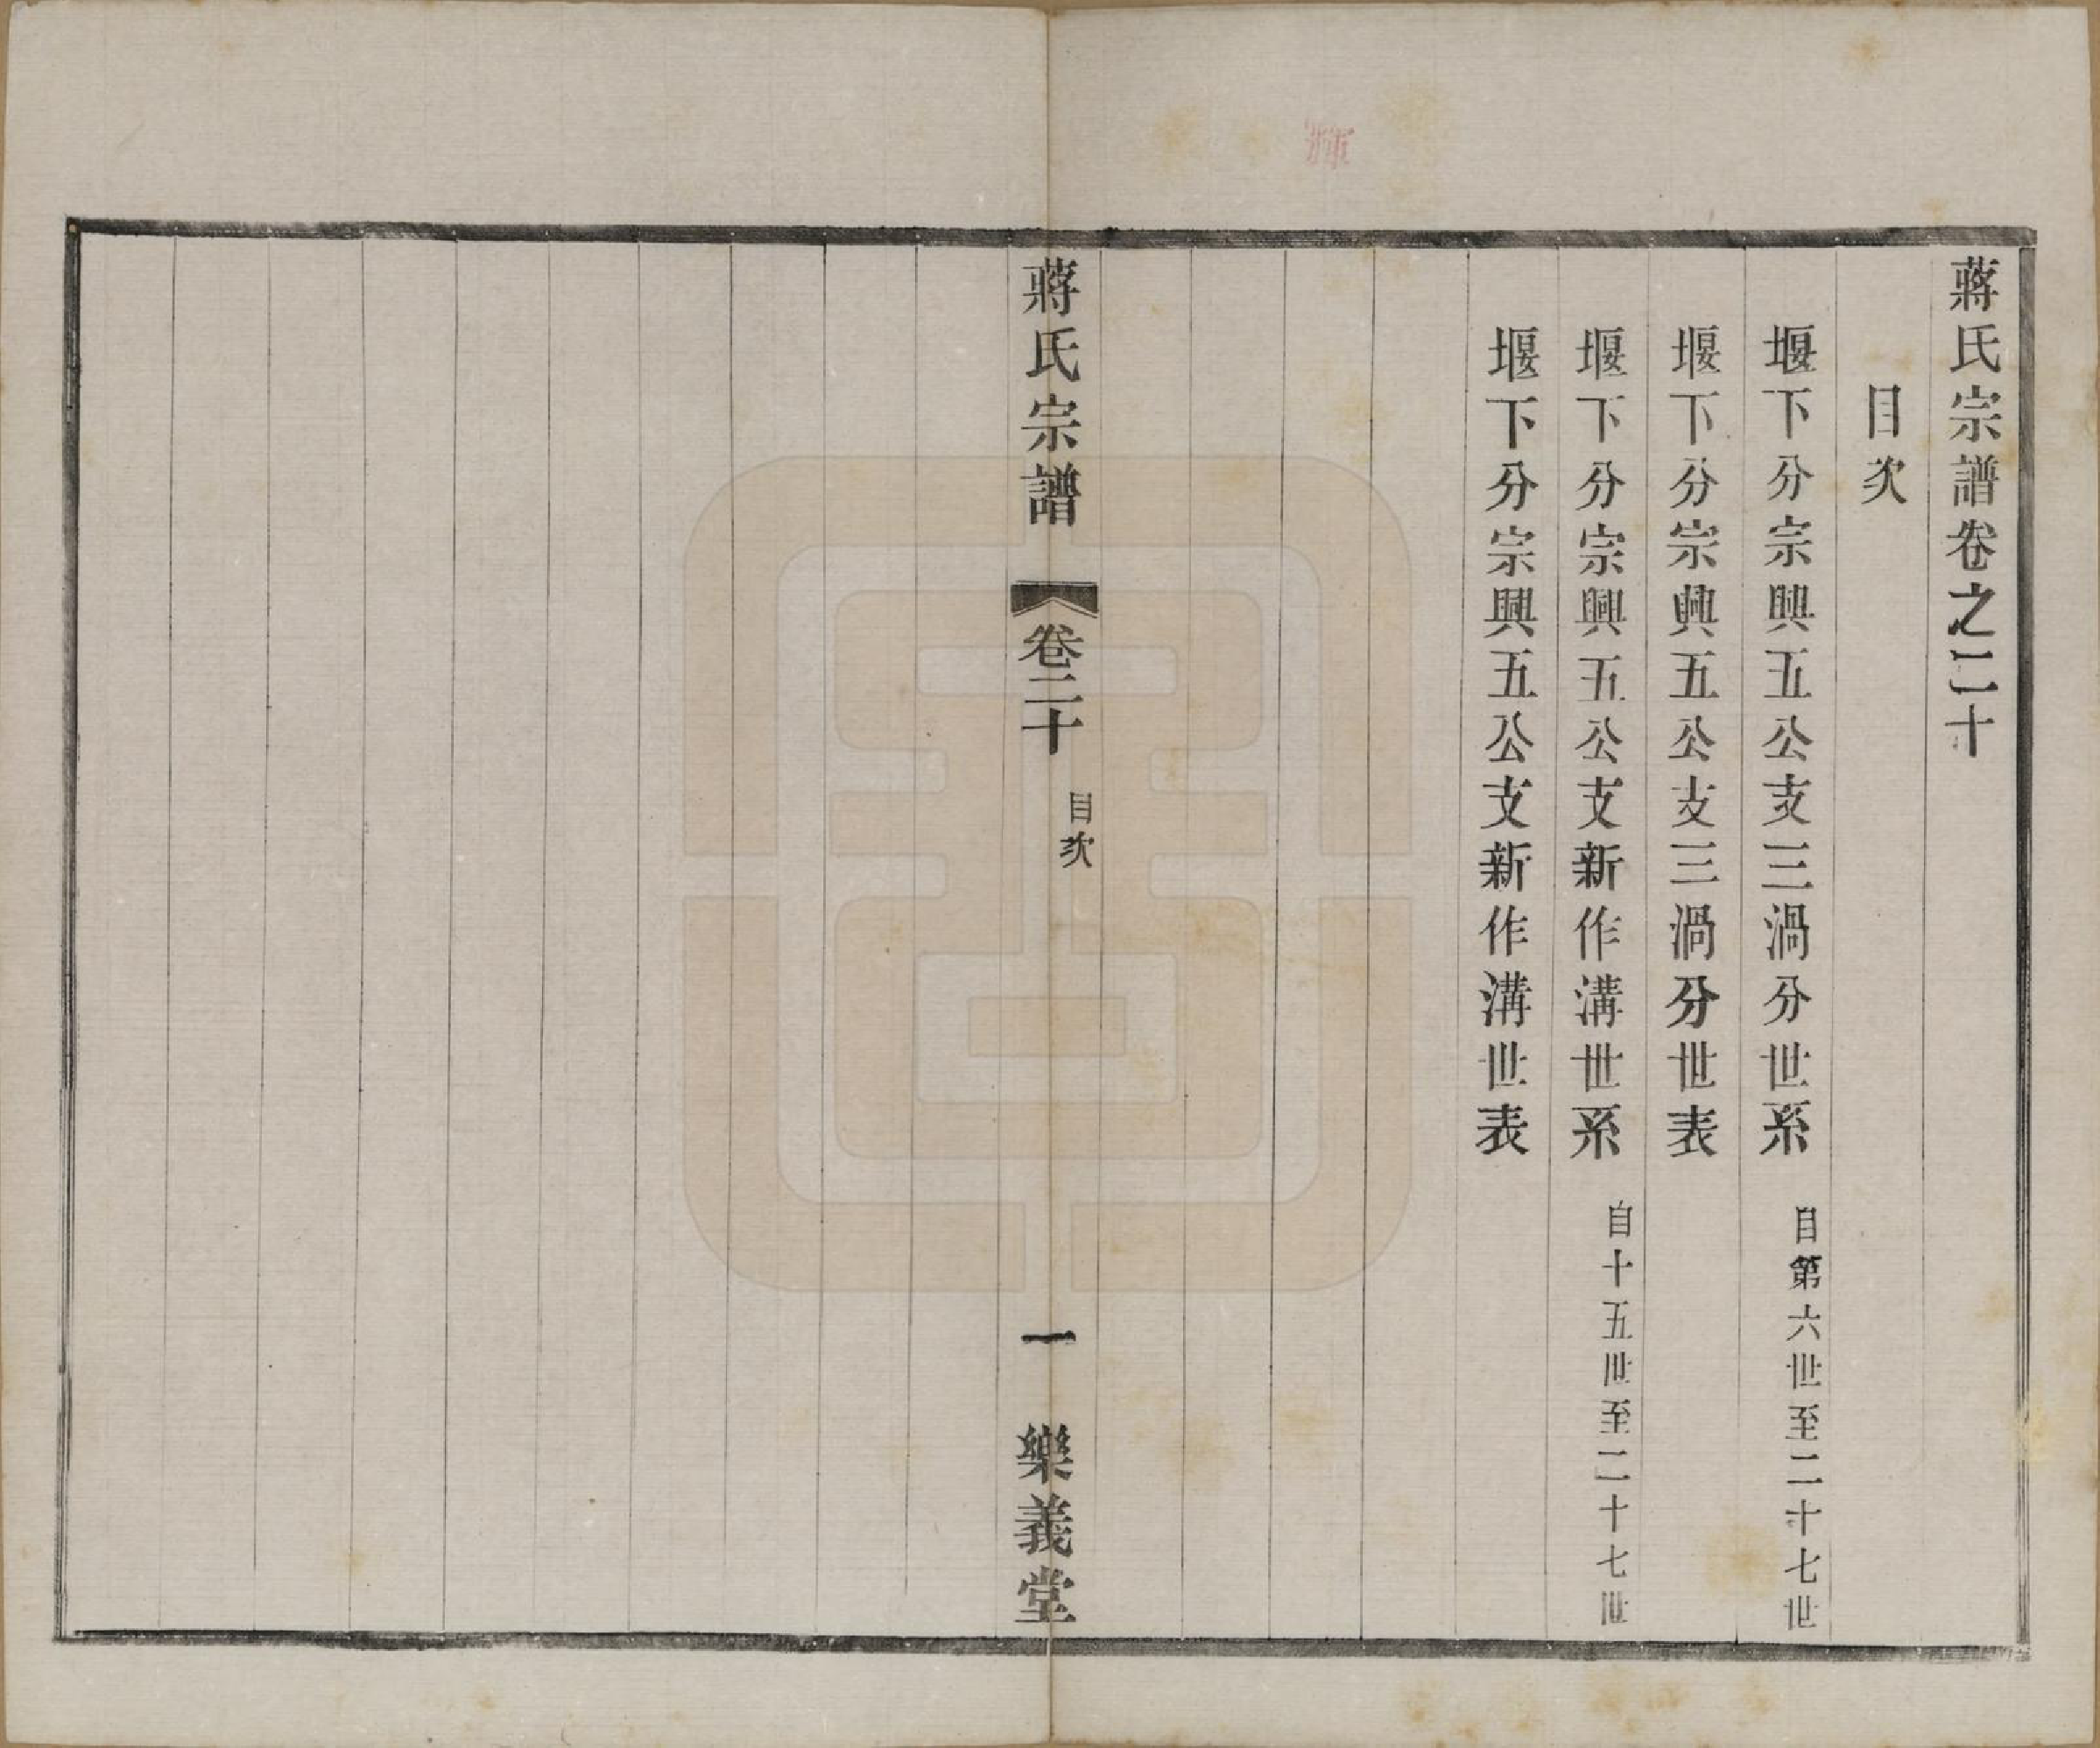 蔣氏宗譜卷之二十
目次
堰下分宗興五公支三渦分世系 自第六世至二十七世
堰下分宗興五公支三渦分世表
堰下分宗興五公支新作溝世系 自十五世至二十七世
堰下分宗興五公支新作溝世表
蔣氏宗譜 卷二十 目次 一 樂義堂